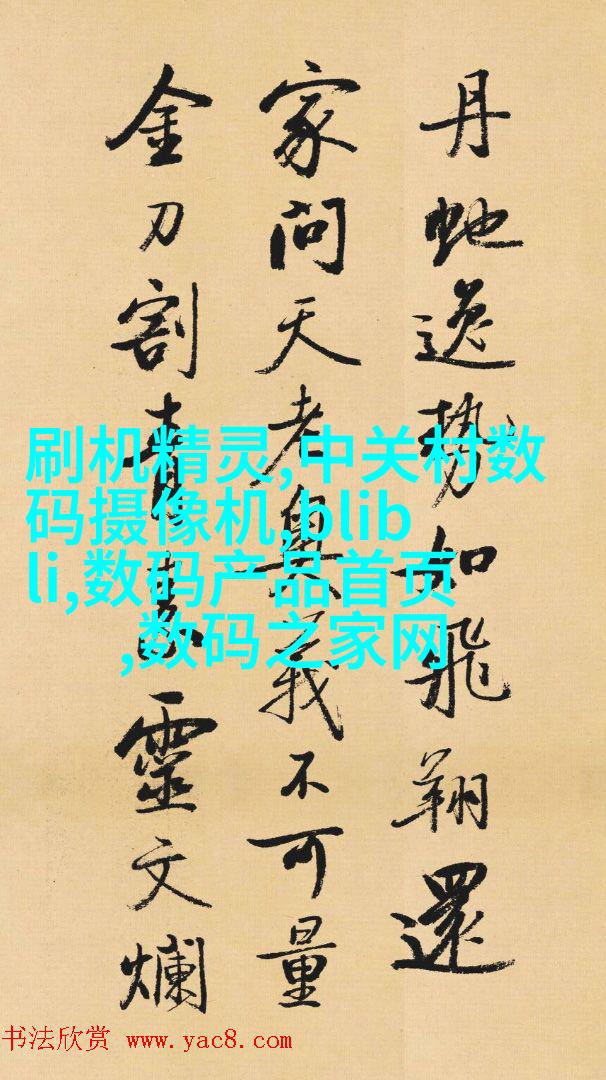 丹虵逸勢如飛翔還
家問天老奧義不可量
金刀割青素靈文爛
刷机精灵,中关村数
码摄像机,blib
li,数码产品首页
,数码之家网
书法欣赏 www.yac8.com